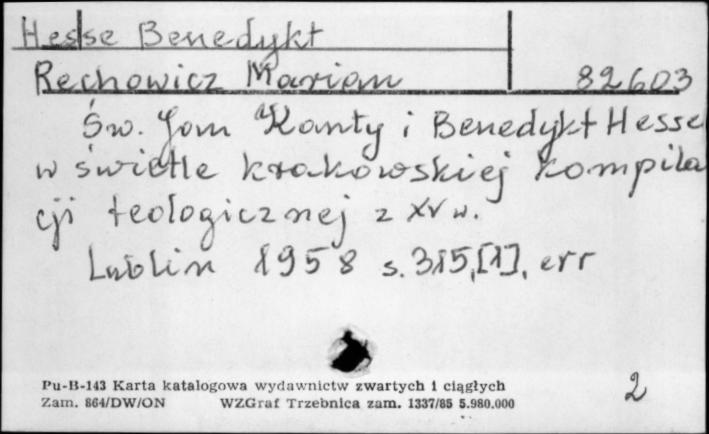 Hesse Benedykt
Rechowicz Marian 82603
Św. Jan Kanty i Benedykt Hesse
w świetle krakowskiej kompila
cji teologicznej z XV w.
Lublin 1958 s. 315, [1], err
Pu-B-143 Karta katalogowa wydawnictw zwartych i ciągłych
Zam. 864/DW/ON WZGraf Trzebnica zam. 1337/85 5.980.000
2